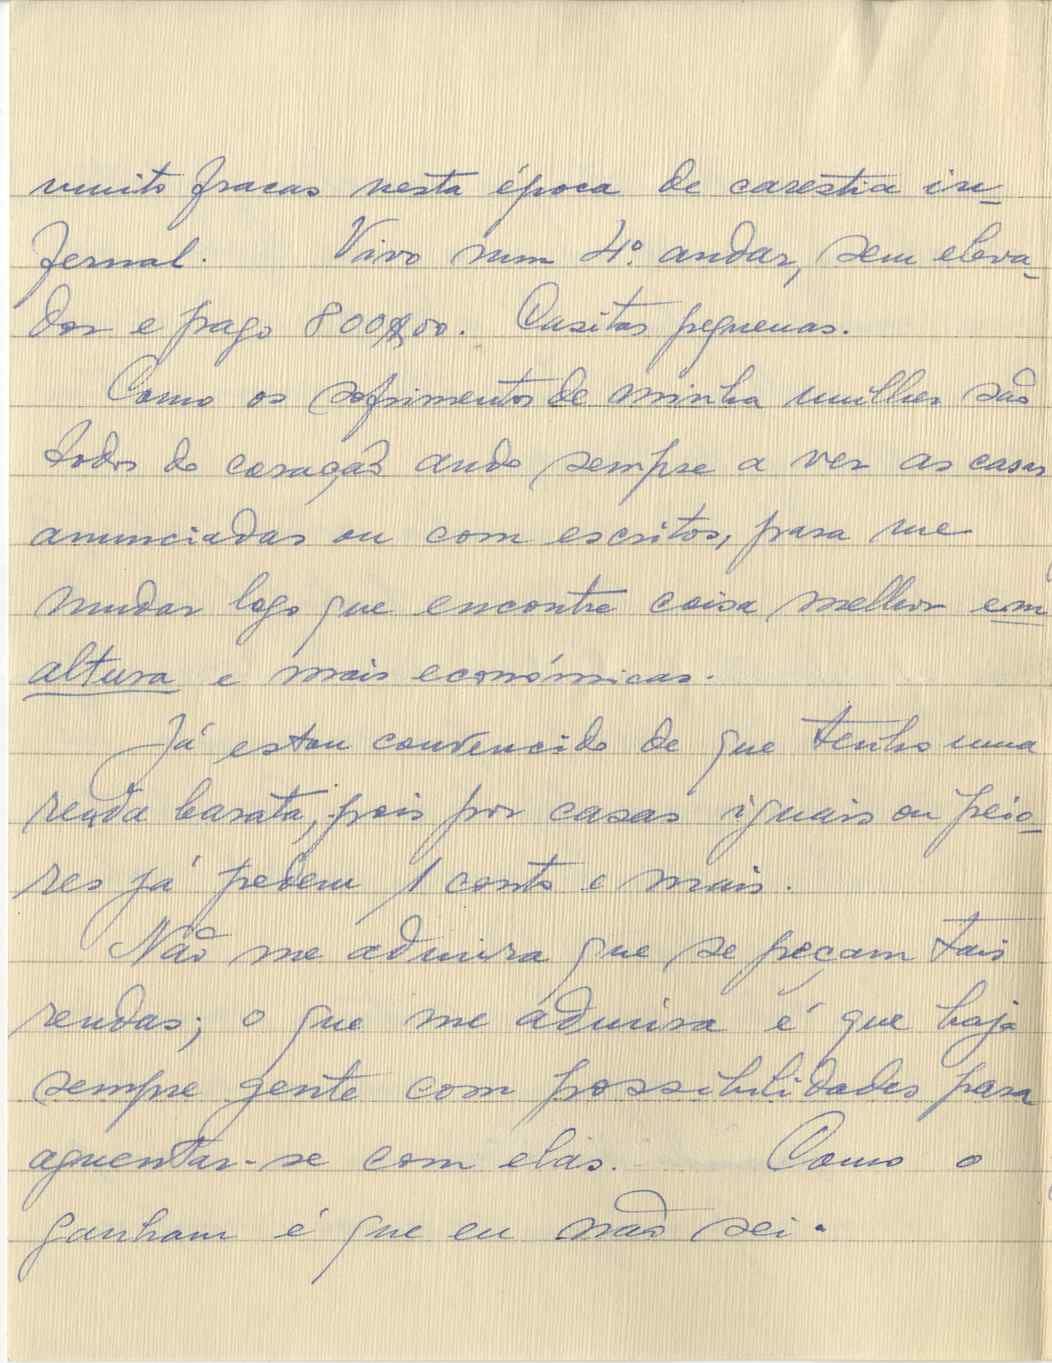 muito fracas nesta época de carestia in-
fernal. Vivo num 4º. andar, sem eleva-
dor e pago 800$00. Casitas pequenas.
Como os sofrimentos de minha mulher são
todos do coração ando sempre a ver as casas
anunciadas ou com escritos, para me
mudar logo que encontre coisa melhor em
altura e mais económicas.
Já estou convencido de que tenho uma
renda barata, pois por casas iguais ou peio-
res já pedem 1 conto e mais.
Não me admira que se peçam tais
rendas; o que me admira é que haja
sempre gente com possibilidades para
aguentar-se com elas. Como o
ganham é que eu não sei.